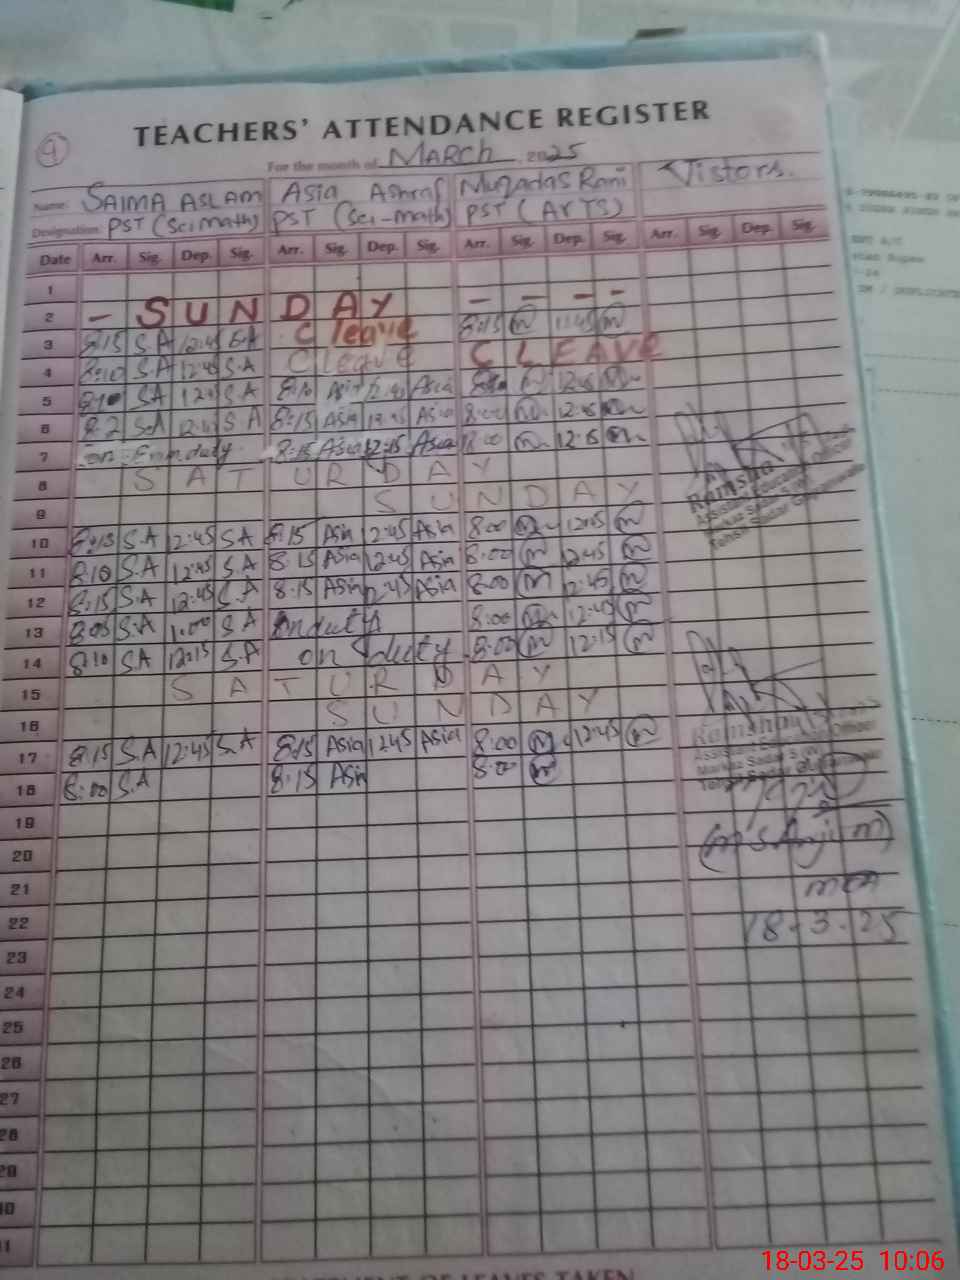 9
TEACHERS' ATTENDANCE REGISTER
For the month of MARCH, 2025
Name: SAIMA ASLAM Asia Ashraf Muqadas Rani Vistors.
Designation: PST (Sci math) PST (Sci-math) PST (ARTS)
Date Arr. Sig. Dep. Sig. Arr. Sig. Dep. Sig. Arr. Sig. Dep. Sig. Arr. Sig. Dep. Sig.
1
2 - SUNDAY - - - -
3 8:15 S.A 12:45 S.A C leave 8:15 m 12:45 m
4 8:10 S.A 12:45 S.A C leave C LEAVE
5 8:10 SA 12:45 S.A 8:10 Asia 12:45 Asia m 12:45 m
6 S.A 12:45 S.A 8:15 Asia 12:45 Asia 8:00 m 12:45 m
7 on duty 8:15 Asia 12:15 Asia 8:00 m 12:15 m
8 SATURDAY
9 SUNDAY
10 8:15 S.A 12:45 S.A 8:15 Asia 12:45 Asia 8:00 m 12:45 m
11 8:10 S.A 12:45 S.A 8:15 Asia 12:45 Asia 8:00 m 12:45 m
12 8:15 S.A 12:45 S.A 8:15 Asia 12:45 Asia 8:00 m 12:45 m
13 8:05 S.A 1:00 S.A on duty 8:00 m 12:45 m
14 8:10 S.A 12:15 S.A on duty 8:00 m 12:15 m
15 SATURDAY
16 SUNDAY
17 8:15 S.A 12:45 S.A 8:15 Asia 12:45 Asia 8:00 m 12:45 m
18 8:00 S.A 8:15 Asia 8:00 m
19
20
21
22
23
24
25
26
27
28
29
30
31
Ramsha
Assistant Education Officer
Markaz Sadar
Tehsil Sadar
Ramsha
Assistant Education Officer
Markaz Sadar
Tehsil Sadar
18-3-25
STATEMENT OF LEAVES TAKEN
18-03-25 10:06